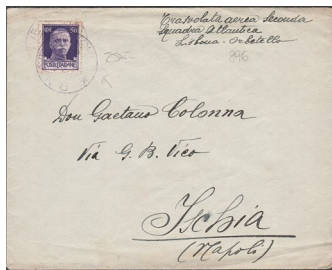 50
POSTE ITALIANE
Trasvolata aerea Seconda
Squadra Atlantica
Lisbona - Orbetello
896
Don Gaetano Colonna
Via G. B. Vico
Ischia
(Napoli)